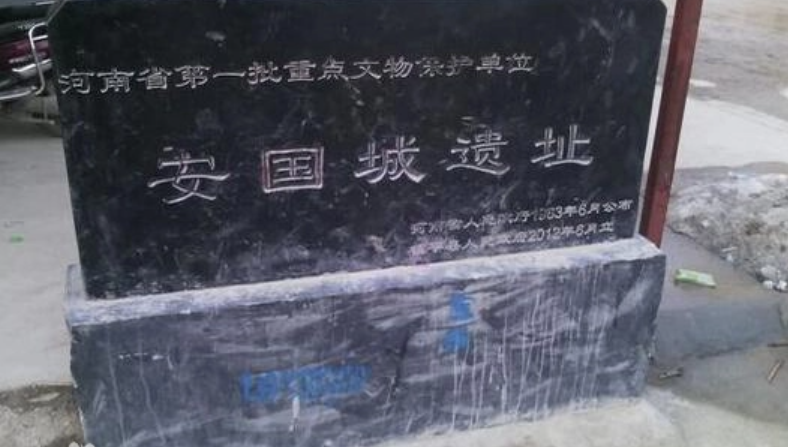 河南省第一批重点文物保护单位
安国城遗址
河南省人民政府1963年6月公布
县人民政府2012年6月立